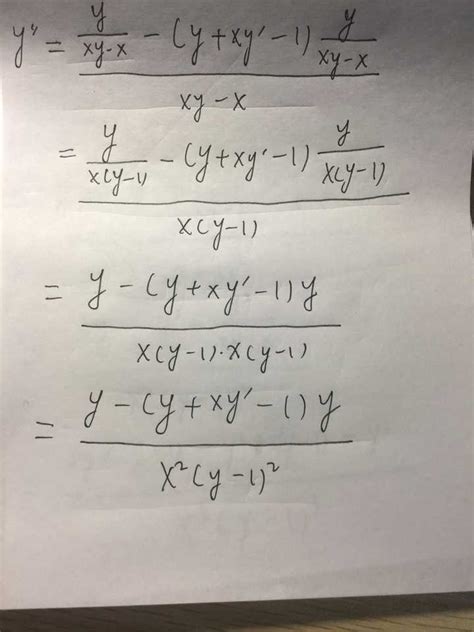 y'' = (y/(xy-x) - (y+xy'-1) y/(xy-x))/(xy-x)
= (y/(x(y-1)) - (y+xy'-1) y/(x(y-1)))/(x(y-1))
= (y-(y+xy'-1)y)/(x(y-1)·x(y-1))
= (y-(y+xy'-1)y)/(x²(y-1)²)